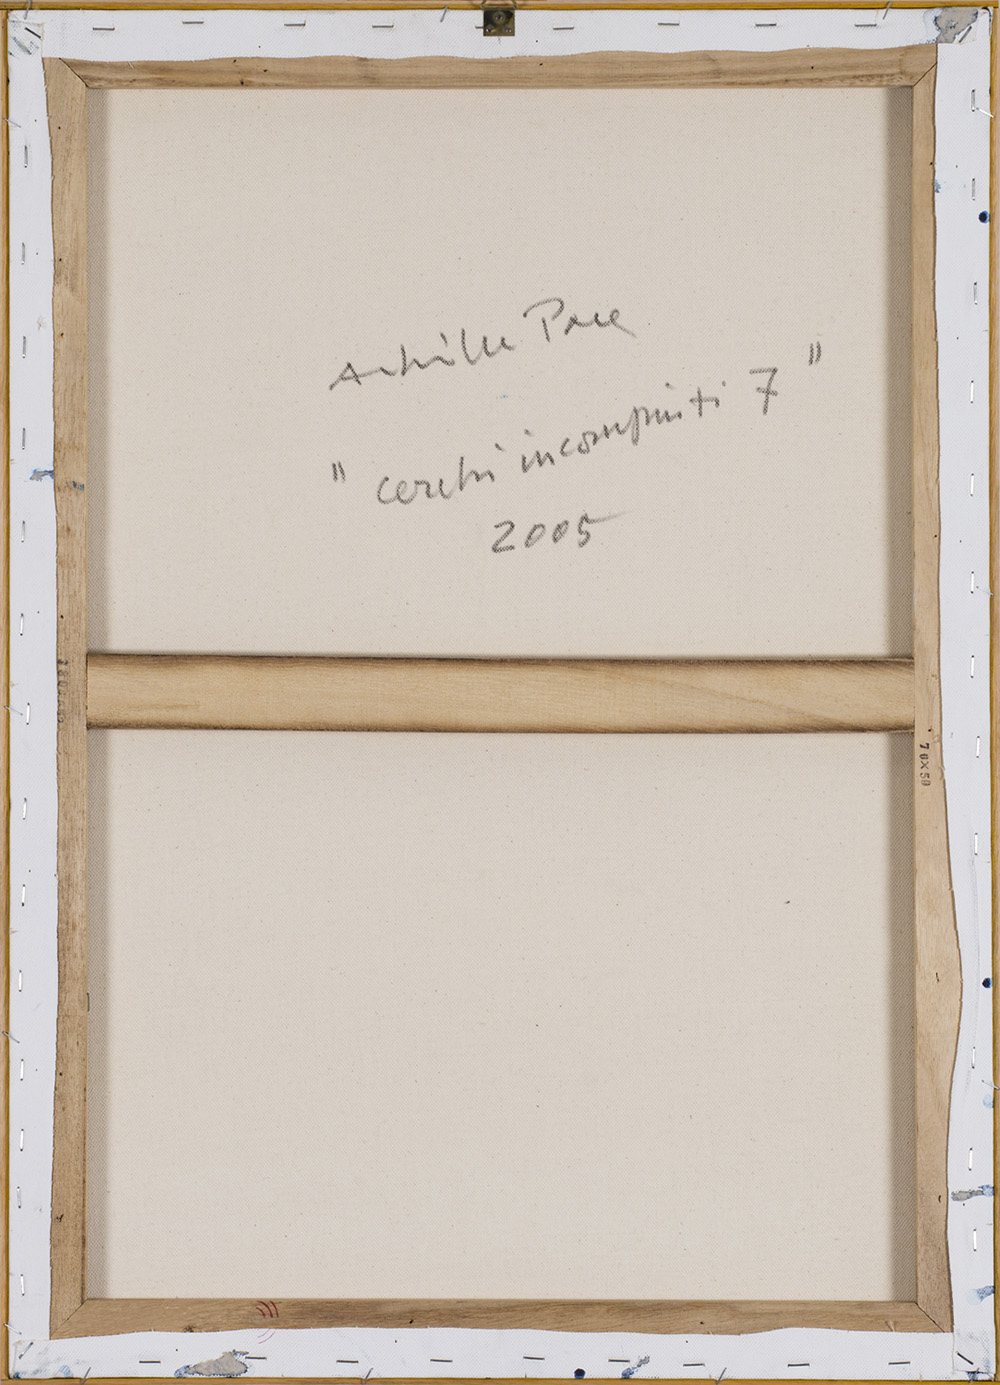 Achille Pace
" cerchi incompiuti 7 "
2005
70x50